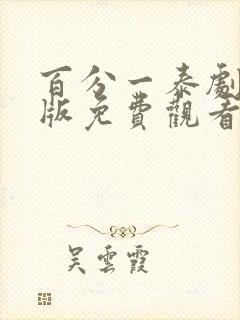 百分一泰劇
版免費觀看
吴雲霞